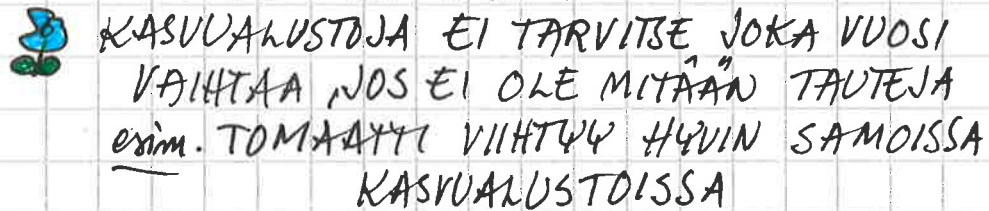 KASVUALUSTOJA EI TARVITSE JOKA VUOSI
VAIHTAA, JOS EI OLE MITÄÄN TAUTEJA
esim. TOMAATTI VIIHTYY HYVIN SAMOISSA
KASVUALUSTOISSA